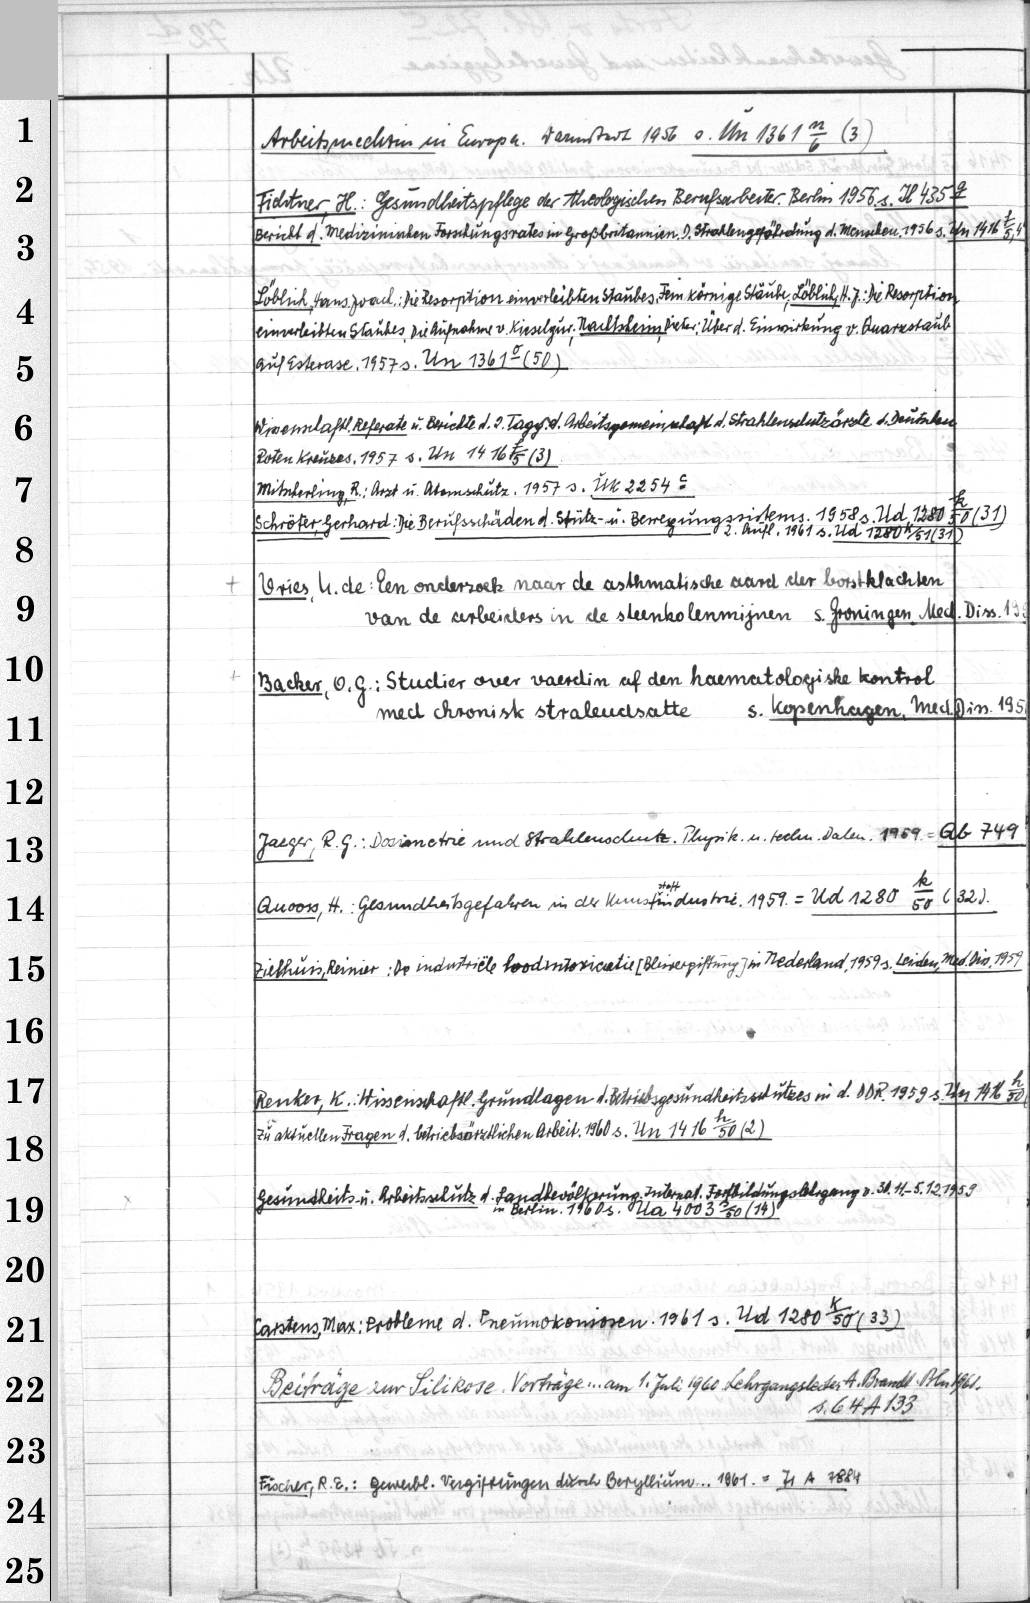 1
Arbeitsmedizin in Europa. Darmstadt 1956 s. Un 1361 n/6 (3)
2
Fichtner, H.: Gesundheitspflege der theologischen Berufsarbeiter. Berlin 1956 s. H 435 q
3
Bericht d. Medizinischen Forschungsrates in Großbritannien. D. Strahlengefährdung d. Menschen. 1956 s. Un 1416 t/5, 4
Löblich, Hans Joach.: Die Resorption einverleibten Staubes. Fein körnige Stäube, Löblich, H. J.: Die Resorption
4
einverleibten Staubes. Die Aufnahme v. Kieselgur. Nachtsheim, Dieter: Über d. Einwirkung v. Quarzstaub
5
auf Esterase. 1957 s. Un 1361 o (50)
6
Wissenschaftl. Referate u. Berichte d. 2. Tagg. d. Arbeitsgemeinschaft d. Strahlenschutzärzte d. Deutschen
Roten Kreuzes. 1957 s. Un 1416 f/5 (3)
7
Mitscherling, R.: Arzt u. Atomschutz. 1957 s. Uk 2254 c
Schröter, Gerhard: Die Berufsschäden d. Stütz- u. Bewegungssistems. 1958 s. Ud 1280 k/50 (31)
2. Aufl. 1961 s. Ud 1280 k/51 (31)
8
+ Vries, U. de: Een onderzoek naar de asthmatische aard der borstklachten
9
van de arbeiders in de steenkolenmijnen s. Groningen, Med. Diss. 19
10
+ Backer, O. G.: Studier over vaerdin af den haematologiske kontrol
11
med chronisk straleudsatte s. Kopenhagen, Med. Diss. 195
12
13
Jaeger, R. G.: Dosimetrie und Strahlenschutz. Physik. u. techn. Daten. 1959 = Qb 749
14
Quooss, H.: Gesundheitsgefahren in der Kunststoffindustrie. 1959. = Ud 1280 k/50 (32).
15
Zielhuis, Reinier: De industriële loodintoxicatie [Bleivergiftung] in Nederland, 1959 s. Leiden, Med. Dis. 1959
16
17
Renker, K.: Wissenschaftl. Grundlagen d. Betriebsgesundheitsschutzes in d. DDR. 1959 s. Un 1416 h/50
18
Zu aktuellen Fragen d. betriebsärztlichen Arbeit. 1960 s. Un 1416 h/50 (2)
19
Gesundheits- u. Arbeitsschutz d. Landbevölkerung. Internat. Fortbildungslehrgang v. 30.11.-5.12.1959
in Berlin. 1960 s. Ua 4003 /50 (14)
20
21
Carstens, Max: Probleme d. Pneumokoniosen. 1961 s. Ud 1280 k/50 (33)
22
Beiträge zur Silikose. Vorträge... am 1. Juli 1960 Lehrgangsleiter A. Brandt. Bln 1961.
s. 64 A 133
23
Fischer, R. E.: gewerbl. Vergiftungen durch Beryllium... 1961. = Z1 A 7884
24
25